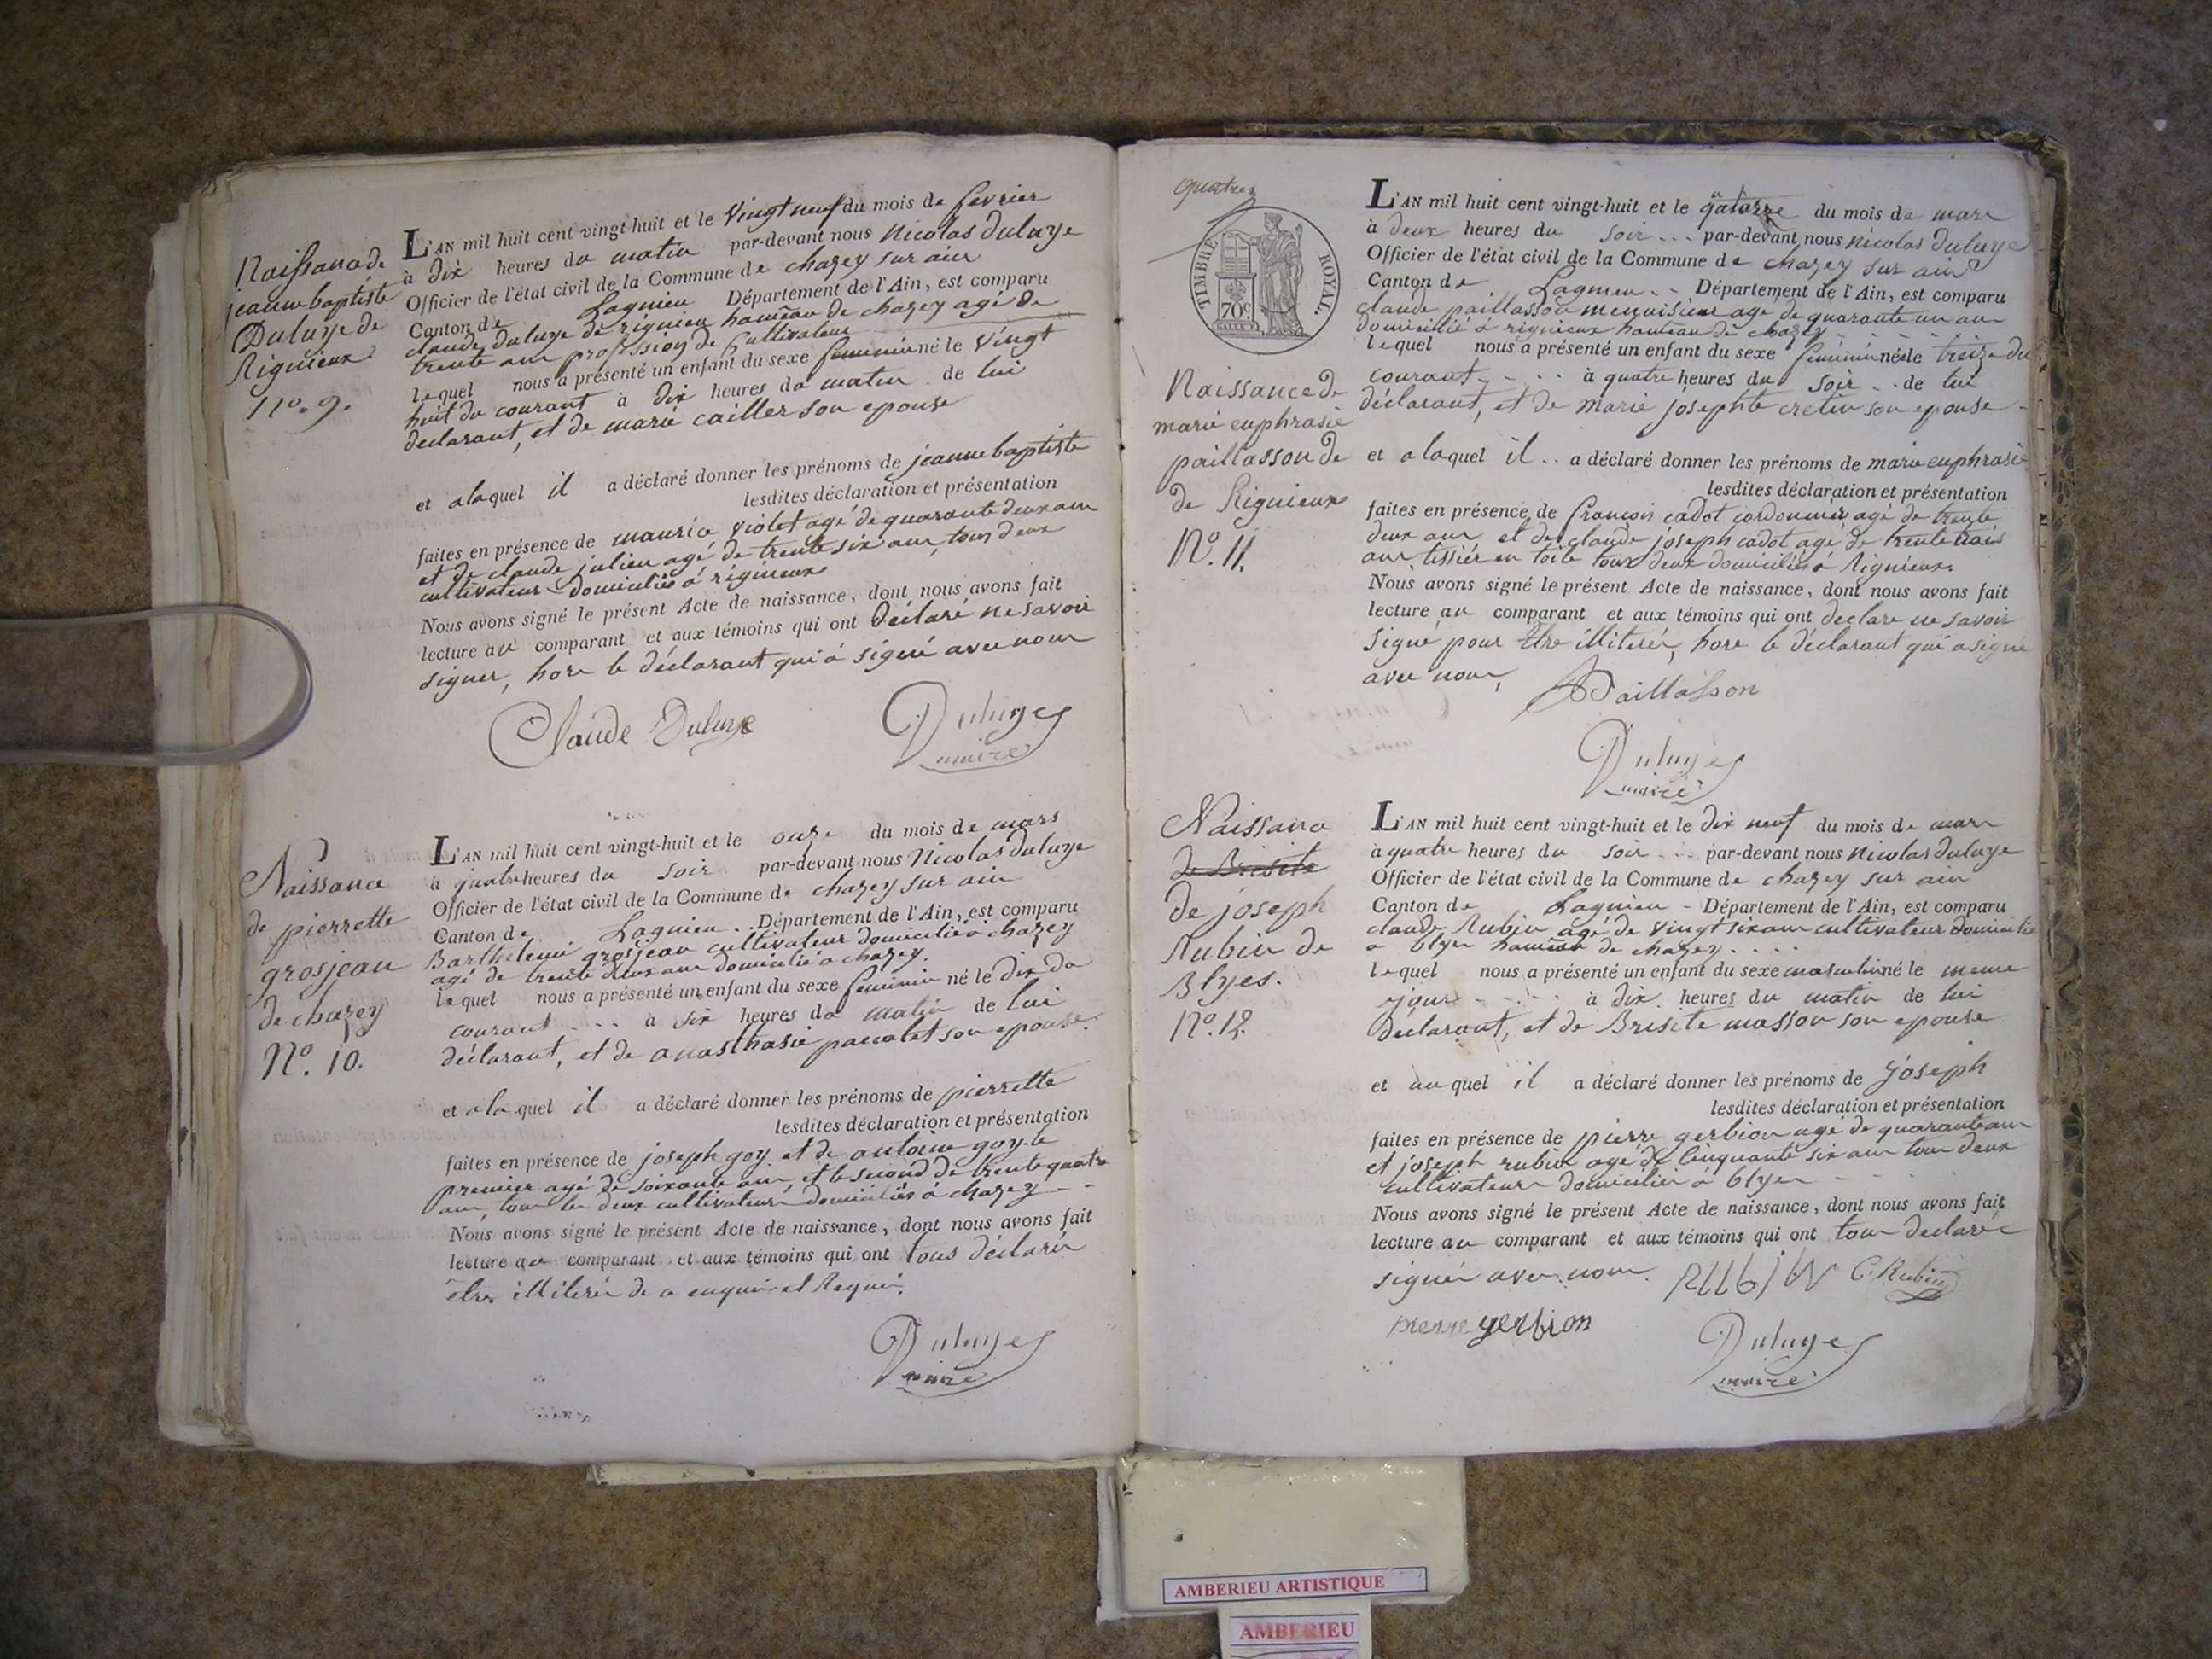 Naissance de
jeanne baptiste
Duluye de
Rignieux
N°. 9.
L'AN mil huit cent vingt-huit et le vingt neuf du mois de fevrier
à dix heures du matin par-devant nous Nicolas duluye
Officier de l'état civil de la Commune de chazey sur ain
Canton de Lagnieu Département de l'Ain, est comparu
claude duluye de rignieu hameau de chazey agé de
trente ans profession de Cultivateur
lequel nous a présenté un enfant du sexe feminin né le vingt
huit du courant à dix heures du matin de lui
déclarant, et de marie cailler son epouse
et a laquel il a déclaré donner les prénoms de jeanne baptiste
lesdites déclaration et présentation
faites en présence de maurice violet agé de quarante deux ans
et de claude julien agé de trente six ans, tous deux
cultivateurs domiciliés à rignieux
Nous avons signé le présent Acte de naissance, dont nous avons fait
lecture au comparant et aux témoins qui ont déclaré ne savoir
signer, hors le déclarant qui a signé avec nous
Claude Duluye Duluye
maire
Naissance
de pierrette
grosjean
de chazey
N°. 10.
L'AN mil huit cent vingt-huit et le onze du mois de mars
à quatre heures du soir par-devant nous Nicolas duluye
Officier de l'état civil de la Commune de chazey sur ain
Canton de Lagnieu Département de l'Ain, est comparu
Barthelemi grosjean cultivateur domicilié à chazey
agé de trente deux ans domicilié a chazey.
lequel nous a présenté un enfant du sexe feminin né le dix du
courant à six heures du matin de lui
déclarant, et de anasthasie pacalet son epouse
et a la quel il a déclaré donner les prénoms de pierrette
lesdites déclaration et présentation
faites en présence de joseph goy et de antoine goy le
premier agé de soixante ans, et le second de trente quatre
ans, tous les deux cultivateurs domiciliés à chazey
Nous avons signé le présent Acte de naissance, dont nous avons fait
lecture au comparant et aux témoins qui ont tous déclarés
etre illiterés de a enquis et Requis.
Duluye
maire
TIMBRE ROYAL.
70c.
Naissance de
marie euphrasie
paillasson de
de Rignieux
N°. 11.
L'AN mil huit cent vingt-huit et le quatorze du mois de mars
à deux heures du soir par-devant nous nicolas duluye
Officier de l'état civil de la Commune de chazey sur ain
Canton de Lagnieu Département de l'Ain, est comparu
claude paillasson menuisier agé de quarante un ans
domicilié à rignieux hameau de chazey
lequel nous a présenté un enfant du sexe feminin née le treize du
courant à quatre heures du soir de lui
déclarant, et de marie josephte cretin son epouse
et a laquel il a déclaré donner les prénoms de marie euphrasie
lesdites déclaration et présentation
faites en présence de françois cadot cordonnier agé de trente
deux ans et de claude joseph cadot agé de trente trois
ans tissier en toile tous deux domiciliés à Rignieux.
Nous avons signé le présent Acte de naissance, dont nous avons fait
lecture au comparant et aux témoins qui ont declare ne savoir
signé pour être illiterés, hors le déclarant qui a signé
avec nous,
Paillasson
Duluye
maire
Naissance
de Brisite
de joseph
Rubin de
Blyes.
N°. 12.
L'AN mil huit cent vingt-huit et le dix neuf du mois de mars
à quatre heures du soir par-devant nous Nicolas duluye
Officier de l'état civil de la Commune de chazey sur ain
Canton de Lagnieu Département de l'Ain, est comparu
claude Rubin agé de vingt six ans cultivateur domicilié
a blyes hameau de chazey
lequel nous a présenté un enfant du sexe masculin né le meme
jour à dix heures du matin de lui
déclarant, et de Brisite masson son epouse
et au quel il a déclaré donner les prénoms de joseph
lesdites déclaration et présentation
faites en présence de pierre gerbion agé de quarante ans
et joseph rubin agé de cinquante six ans tous deux
cultivateurs domiciliés à blyes
Nous avons signé le présent Acte de naissance, dont nous avons fait
lecture au comparant et aux témoins qui ont tous declarés
signés avec nous. Rubin C. Rubin
pierre gerbion Duluye
maire
AMBERIEU ARTISTIQUE
AMBERIEU